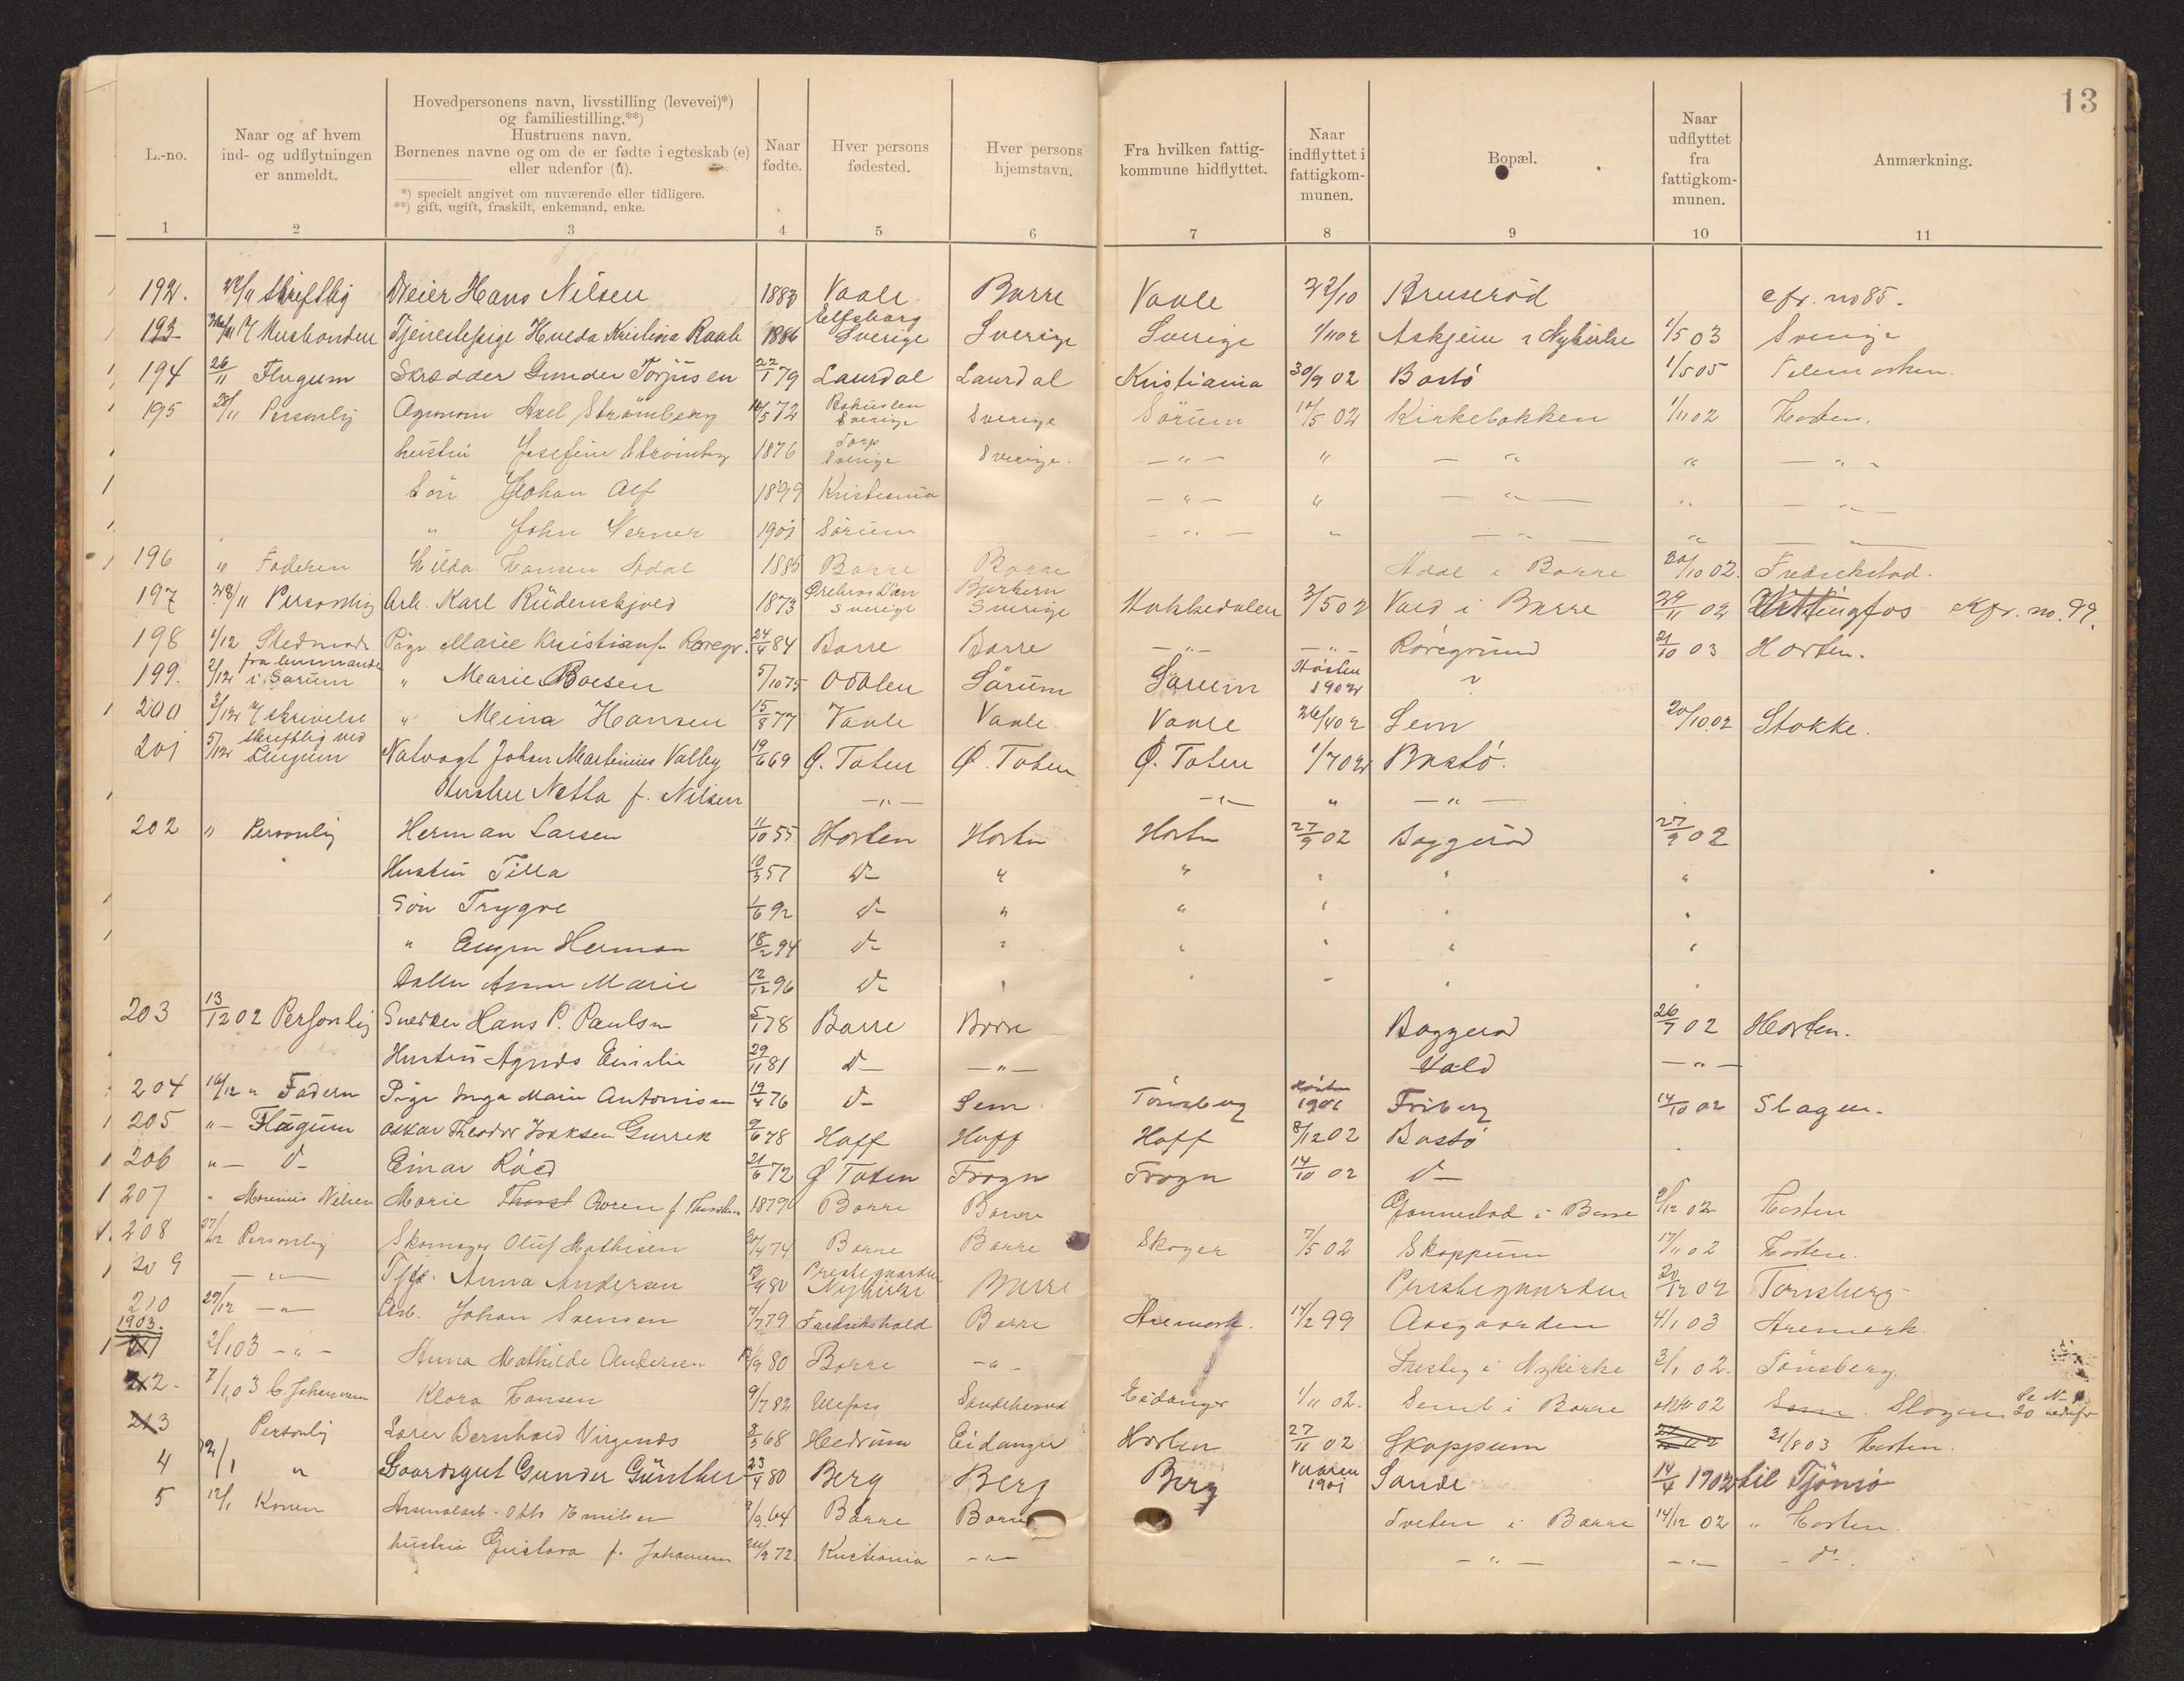 13
L.-no.
Naar og af hvem
ind- og udflytningen
er anmeldt.
Hovedpersonens navn, livsstilling (levevei)*)
og familiestilling.**)
Hustruens navn.
Børnenes navne og om de er fødte i egteskab (e)
eller udenfor (u).
*) specielt angivet om nuværende eller tidligere.
**) gift, ugift, fraskilt, enkemand, enke.
Naar
fødte.
Hver persons
fødested.
Hver persons
hjemstavn.
Fra hvilken fattig-
kommune hidflyttet.
Naar
indflyttet i
fattigkom-
munen.
Bopæl.
Naar
udflyttet
fra
fattigkom-
munen.
Anmærkning.
1 2 3 4 5 6 7 8 9 10 11
192. Skriftlig Hans Nilsen 1883 Vaale Borre Vaale 22/10 Bruserød cfr. no 85.
193 Husbonden Tjenestepige Kristina 1886 Elfsborg Sverige Sverige Sverige 1/11 02 Askjem i Nykirke 1/5 03 Sverige
194 26/11 Skrædder Gunder Torjusen 22/1 79 Laurdal Laurdal Kristiania 30/9 02 Bastö 1/5 05 Telemarken.
195 28/11 Personlig Agronom Axel Strömberg 5 72 Sverige Sverige Sörum 5 02 Kirkebakken 1/11 02 Horten.
hustru Josefine Strömberg 1876 Torp Sverige Sverige. — " — " — " — " — " —
Sön Johan Alf 1899 Kristiania — " — " — " — " — " —
" John Verner 1901 Sörum — " — " — " — " — " —
196 " Faderen Hilda Hansen Adal 1885 Borre Borre Adal i Borre 10 02. Fredrikstad.
197 28/11 Personlig Arb. Karl 1873 Sverige Sverige 3/5 02 Vold i Borre 29/11 02 Vittingfos cfr. no. 99.
198 1/12 Pige Marie 24/4 84 Borre Borre — " — — " — Röregrund 21/10 03 Horten.
199. 2/12 i Sörum " Marie Boesen 5/10 75 Odalen Sörum Sörum Hösten 1902 ?
200 3/12 skrivelse " Meina Hansen 15/8 77 Vaale Vaale Vaale 02 Sem 20/10 02 Stokke.
201 5/12 skriftlig ved Natvagt Johan Martinius Valby 19/6 69 Ø. Toten Ø. Toten Ø. Toten 1/7 02 Bastö.
Hustru Netta f. Nilsen — " — — " — " — " —
202 " Personlig Herman Larsen 11/10 55 Horten Horten Horten 27/9 02 Baggerød 27/9 02
Hustru Tilla 10/3 57 d— " " " " "
Søn Trygve 1/6 92 d— " " " " "
" Eugen Herman 18/2 94 d— " " " " "
Datter Anna Marie 12/12 96 d— " " " " "
203 13/12 02 Personlig Snedker Hans P. Paulsen 5/1 78 Borre Borre Baggerød 26/7 02 Horten.
Hustru Agnes Emilie 29/11 81 d— — " — Vold — " —
204 16/12 " Fadern Pige Inga Marie Antonisen 19/4 76 d— Sem Tönsberg Hösten 1901 Friberg 14/10 02 Slagen.
205 " — Oskar Theodor Isaksen 9/6 78 Hoff Hoff Hoff 8/12 02 Bastö
206 " — d— Einar Röed 21/6 72 Ø Toten Frogn Frogn 14/10 02 d—
207 " Nilsen Marie Owren f. 1879 Borre Borre i Borre 9/12 02 Horten
208 27/12 Personlig Skomager Oluf Mathisen 4 74 Borre Borre Skoger 7/5 02 Skoppum 17/11 02 Horten.
209 — " — Anna Andersen 80 Prestegaarden Nykirke Borre Prestegaarden 20/12 02 Tönsberg
210 29/12 — " — Arb. Johan Svensen 7/7 79 Fredrikshald Borre Aremark. 14/2 99 Aasgaarden 4/1 03 Aremark.
1903.
211 2/1 03 — " — Anna Mathilde Andersen 9 80 Borre — " — i Nykirke 3/1 02. Tönsberg.
212. 7/1 03 Klara Hansen 9/7 82 Ulefos Eidanger 1/11 02. Semb i Borre 02 Sem. Slagen
213 Personlig Lærer Bernhard 68 Hedrum Eidanger Horten 27/11 02 Skoppum 31/8 03 Horten.
4 12/1 " Gaardsgut Gunder Günther 23/4 80 Berg Berg Berg Vaaren 1901 Sande 14/4 1902 til Tjömö
5 12/1 Konen Arsenalarb. Otto Emilsen 9 64 Borre Borre Tveten i Borre 14/12 02 " Horten
hustru Gustava f. Johansen 72. Kristiania — " — — " — — " — — d—.